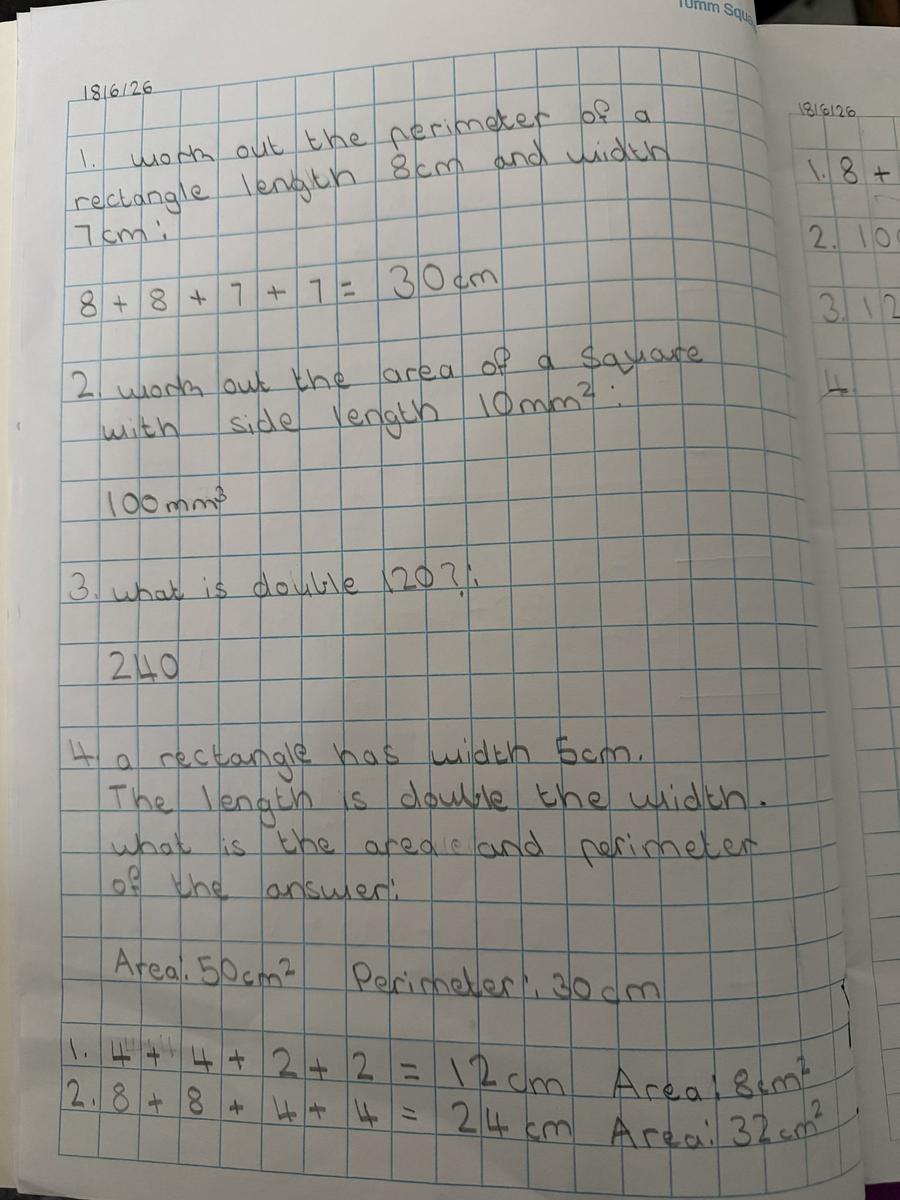 10mm Squa
18/6/26
1. work out the perimeter of a
rectangle length 8cm and width
7cm:
8 + 8 + 7 + 7 = 30cm
2. work out the area of a square
with side length 10mm²:
100mm³
3. what is double 120?:
240
4. a rectangle has width 5cm.
The length is double the width.
what is the area and perimeter
of the answer:
Area: 50cm² Perimeter: 30cm
1. 4 + 4 + 2 + 2 = 12cm Area: 8cm²
2. 8 + 8 + 4 + 4 = 24cm Area: 32cm²
18/6/26
1. 8 +
2. 10
3. 12
4